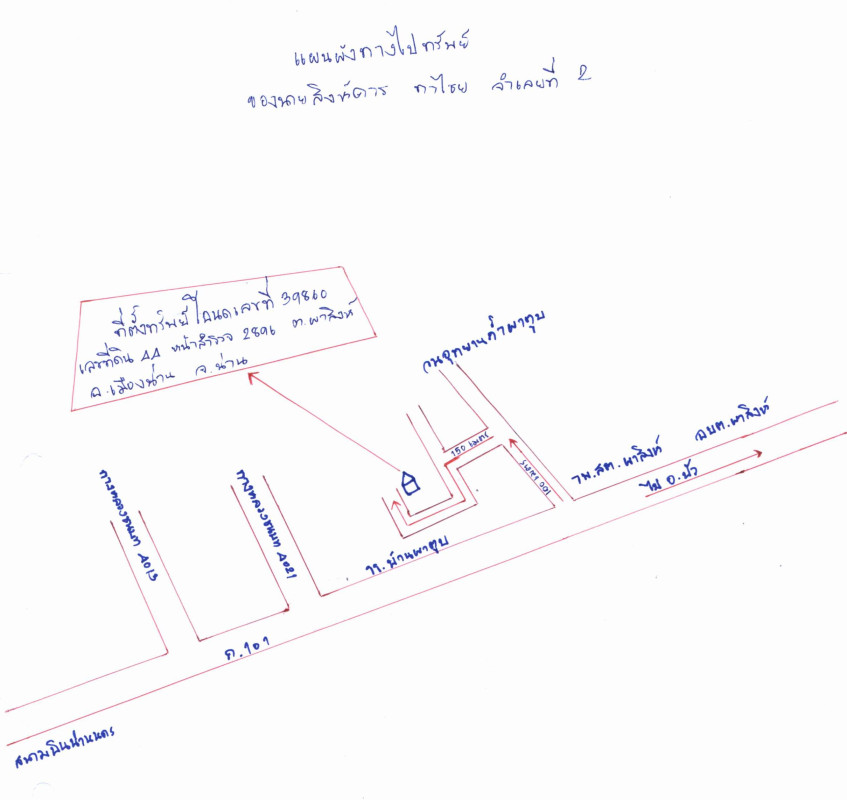 แผนผังทางไปทรัพย์
ของนายสิงห์คาร ทาไชย จำเลยที่ 2
ที่ตั้งทรัพย์โฉนดเลขที่ 39860
เลขที่ดิน 44 หน้าสำรวจ 2896 ต.ผาสิงห์
อ.เมืองน่าน จ.น่าน
วนอุทยานถ้ำผาตูบ
150 เมตร
100 เมตร
รพ.สต.ผาสิงห์
อบต.ผาสิงห์
ไป อ.ปัว
ทางหลวงชนบท 4013
ทางหลวงชนบท 4021
รร.บ้านผาตูบ
ถ.101
สนามบินน่านนคร